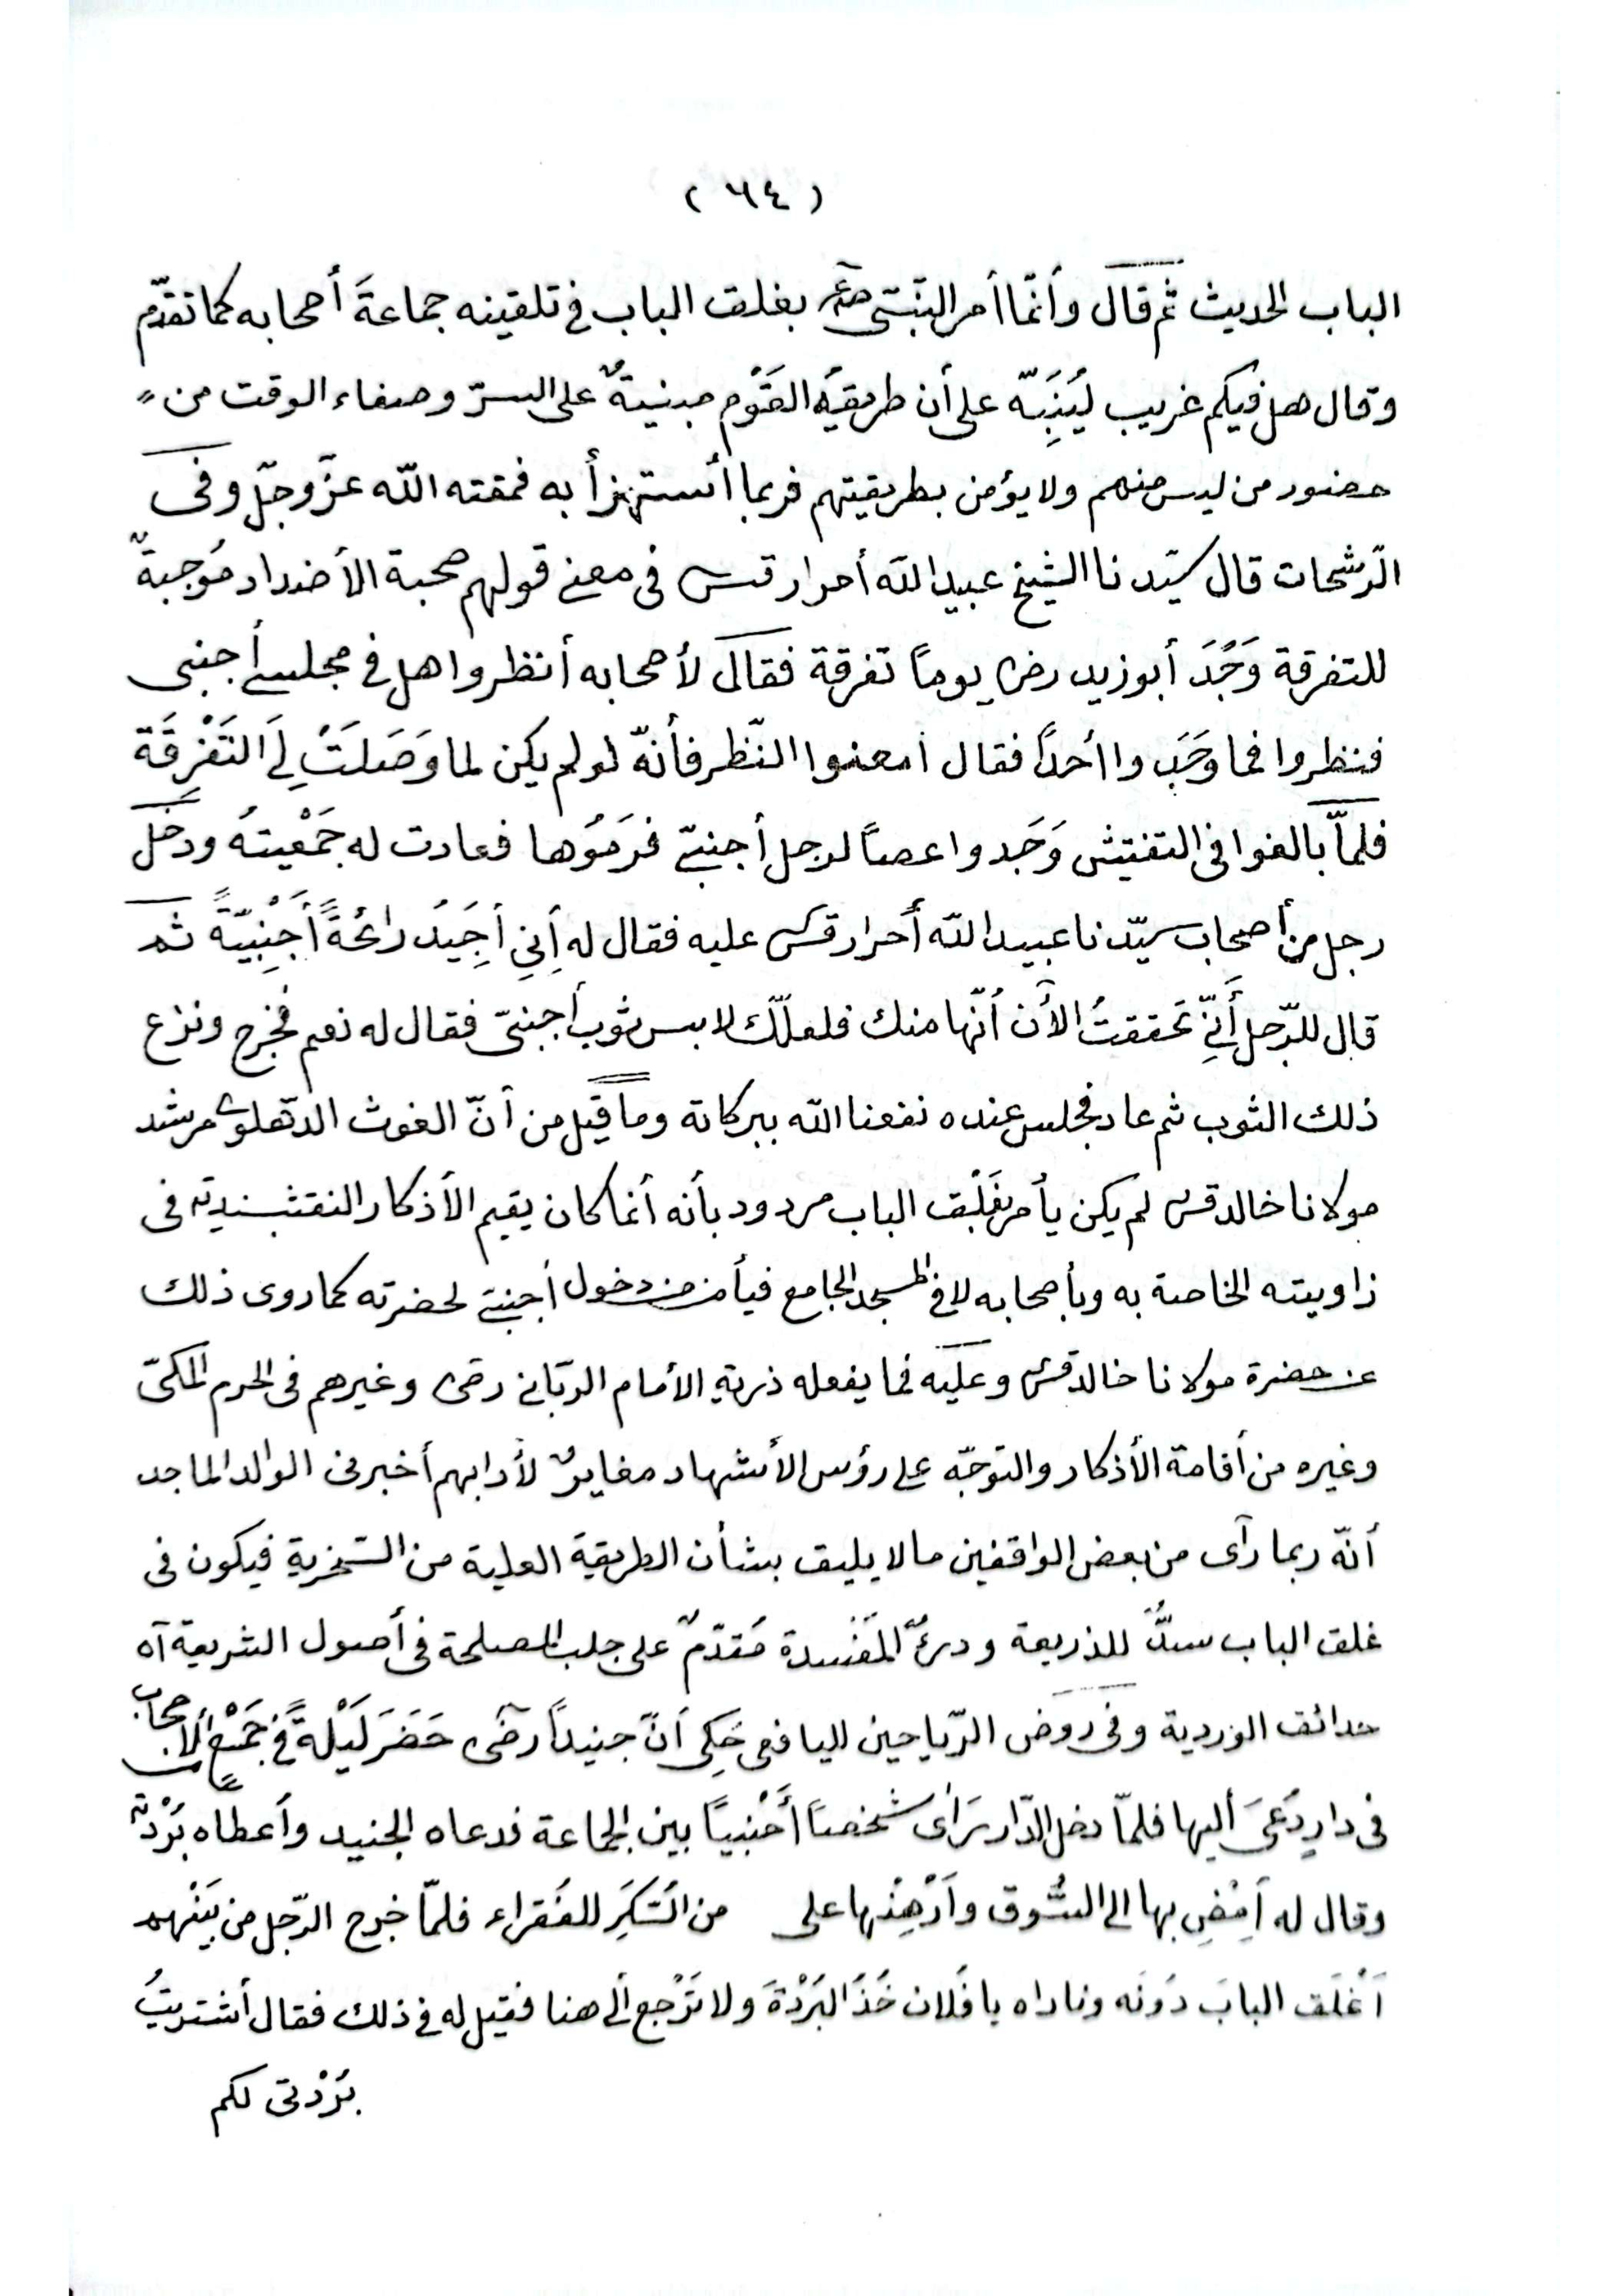 ( ٦٤ )
الباب الحديث ثم قال وأنّما أمر النّبىّ صلعم بغلق الباب في تلقينه جماعةَ أصحابه كما تقدّم
وقال هل فيكم غريب ليُنَبِّه على أن طريقةَ القَوْم مبنيةٌ على السرّ وصفاء الوقت من
حضور من ليس منهم ولا يؤمن بطريقتهم فربما أستهزأ به فمقته اللّه عزّ وجلّ وفى
الرّشحات قال سيّدنا الشيخ عبيد اللّه أحرار قدس فى معنى قولهم صحبة الأضداد مُوجبةٌ
للتفرقة وَجَدَ أبو زيد رض يوماً تفرقة فقال لأصحابه أنظروا هل في مجلسى أجنبى
فنظروا فما وَجَدوا أحداً فقال امعنوا النّظر فأنّه لو لم يكن لما وَصَلَتْ لِىَ التَفْرِقَة
فلمّا بالغوا فى التفتيش وَجَدوا عصاً لرجل أجنبىّ فرَمَوْها فعادت له جَمْعيته ودخل
رجل من أصحاب سيّدنا عبيد اللّه أحرار قدس عليه فقال له إنِي أجِدُ رائحَةً أَجْنِبيّةً ثم
قال للرّجل أنِّي تحققتُ الأٓن أنّها منك فلعلّك لابس ثوب أجنبىّ فقال له نعم فخرج ونزع
ذلك الثوب ثم عاد فجلس عنده نفعنا اللّه ببركاته وما قيل من أنّ الغوث الدّهلوى مرشد
مولانا خالد قدس لم يكن يأمر بغَلْق الباب مردود بأنه أنما كان يقيم الأذكار النقشبندية فى
زاويته الخاصة به وبأصحابه لا في المسجد الجامع فيأمن من دخول أجنبىّ لحضرته كما روى ذلك
عن حضرة مولانا خالد قدس وعليه فما يفعله ذرية الأمام الربّانى رضى وغيرهم فى الحرم المكىّ
وغيره من أقامة الأذكار والتوجّه على رؤس الأشهاد مغايرٌ لأدابهم أخبرنى الوالد الماجد
أنّه ربما رآى من بعض الواقفين ما لا يليق بشأن الطريقة العلية من السّخرية فيكون فى
غلق الباب سدٌّ للذريعة ودرءُ المَفْسدة مُقدّمٌ على جلب المصلحة فى أصول الشريعة آه
حدائق الوردية وفى روض الرّياحين لليافعى حُكِى اَنّ جنيداً رضى حَضَرَ لَيْلَةً فى جَمْعٍ من الأصحاب
فى دارٍ دُعىَ أليها فلمّا دخل الدّار رَاٰى شخصاً أَجْنبياً بين الجماعة فدعاه الجنيد وأعطاه بُرْدته
وقال له اَمِضِ بها الى السُّوق واَرْهِنْها على من السّكَرِ للفُقراء فلمّا خرج الرّجل من بَيْنهم
اَغْلَق البابَ دُونَه وناداه يا فُلان خُذ البُرْدةَ ولا تَرْجع ألى هنا فقيل له فى ذلك فقال أشتريتُ
بُرْدتى لكم